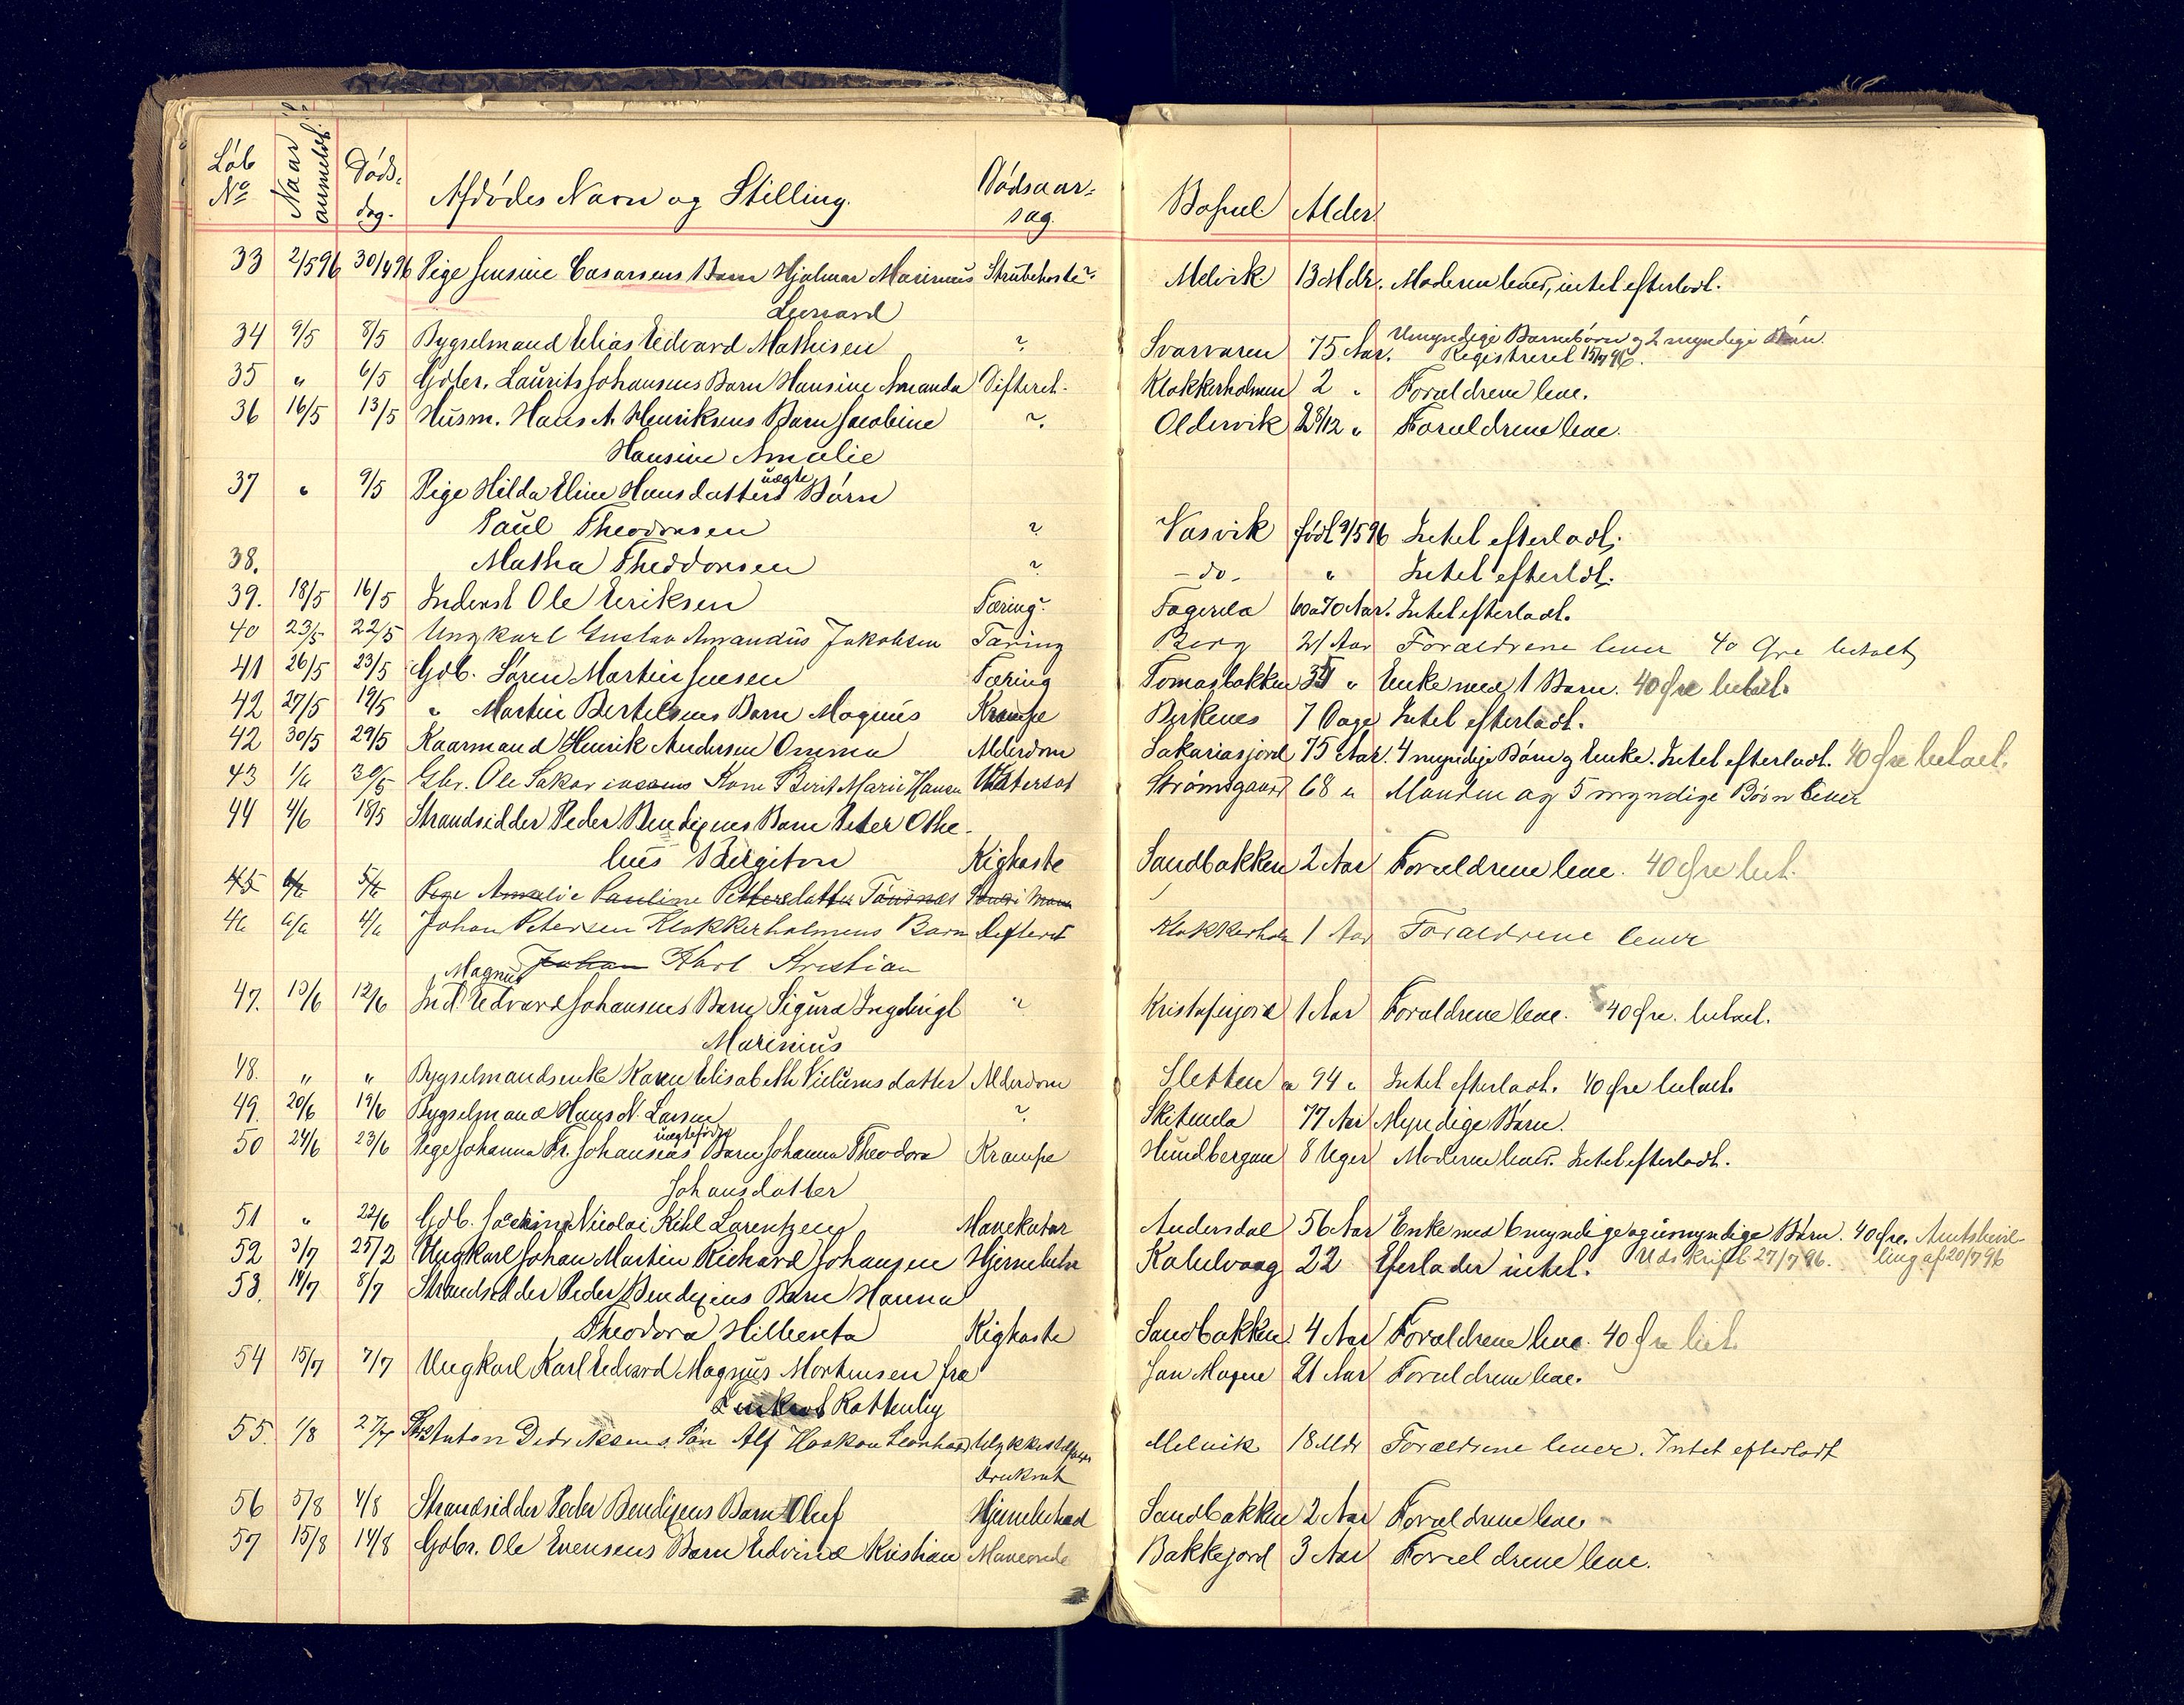 Løb No Naar anmeldt. Døds- dag. Afdødes Navn og Stilling. Dødsaar- sag. Bopæl. Alder.
33 2/5 96 30/4 96 Pige Jensine Casarsens Barn Hjalmar Marinius Strubehoste? Melvik 13 Mdr. Moderen lever, intet efterladt.
Leonard
34 9/5 8/5 Bygselmand Elias Edvard Mathisen ? Svarvaren 75 Aar. Umyndige Barnebørn og 2 myndige Børn.
Registreret 15/7 96.
35 " 6/5 Gdbr. Laurits Johansens Barn Hansine Amanda Difterit. Klokkerholmen 2 " Forældrene leve.
36 16/5 13/5 Husm. Hans A. Henriksens Barn Jacobine ?. Oldervik 2 8/12 " Forældrene leve.
Hansine Amalie
37 " 9/5 Pige Hilda Eline Hansdatters uægte Børn
Paul Theodorsen ? Vasvik født 9/5 96 Intet efterladt.
38. Matha Theodorsen ? - do - " Intet efterldt.
39. 18/5 16/5 Inderst Ole Eriksen Tæring? Fagerela 60 a 70 Aar. Intet efterladt.
40 23/5 22/5 Ungkarl Gustav Amandus Jakobsen Tæring Berg 21 Aar Forældrene lever 40 Øre betalt
41 26/5 23/5 Gdb. Søren Martin Jensen Tæring Tomasbakken 35 " Enke med 1 Barn. 40 Øre betalt.
42 27/5 19/5 " Martin Bertelsens Barn Magnus Krampe Birkenes 7 Dage Intet efterladt.
42 30/5 29/5 Kaarmand Henrik Andersen Omma Alderdom Sakariasjord 75 Aar. 4 myndige Børn og Enke. Intet efterladt. 40 Øre betalt.
43 1/6 30/5 Gbr. Ole Sakariasens Kone Berit Marie Hansen Vatersot Strømsgaard 68 " Manden og 5 myndige Børn lever
44 4/6 18/5 Strandsidder Peder Bendixens Barn Peter Othe-
lius Bergiton Kighoste Sandbakken 2 Aar Forældrene leve. 40 Øre bet.
45 6/6 5/6 Pige Amalie Pauline Pettersdatter Tønsnes
46 6/6 4/6 Johan Petersen Klokkerholmens Barn Difterit Klokkerholm 1 Aar Forældrene lever
Magnus Johan Karl Kristian
47. 13/6 12/6 Ind. Edvard Johansens Barn Sigurd Ingebrigt " Kristofinjord 1 Aar Forældrene leve. 40 Øre. betalt.
Marinius
48. " " Bygselmandsenke Karen Elisabeth Villumsdatter Alderdom Sletten 94 " Intet efterladt. 40 Øre betalt.
49. 20/6 19/6 Bygselmand Hans N. Larsen ? Skitenela 77 Aar Myndige Børn.
50 24/6 23/6 Pige Johanna Fr. Johansens uægtefødte Barn Johanna Theodora Krampe Hundbergan 8 Uger Moderen lever. Intet efterladt.
Johansdatter
51 " 22/6 Gdb. Joachim Nicolai Kihl Lorentzen Mavekatar Andersdal 56 Aar Enke med 6 myndige og umyndige Børn. 40 Øre. Amtsbevil-
52 3/7 25/2 Ungkarl Johan Martin Richard Johansen Kalvvaag 22 Eferlader intet. Udskrift 27/7 96. ling af 20/7 96
53. 14/7 8/7 Strandsidder Peder Bendixens Barn Hanna
Theodora Kighoste Sandbakken 4 Aar Forældrene leve. 40 Øre bet.
54 15/7 7/7 Ungkarl Karl Edvard Magnus Mortensen fra Jan Mayen 21 Aar Forældrene leve.
55. 1/8 27/7 Anton Didriksens Søn Alf Haakon Leonhard Ulykkestilfælde Melvik 18 Mdr Forældrene lever. Intet efterladt
Druknet
56 5/8 4/8 Strandsidder Peder Bendixens Barn Oluf Sandbakken 2 Aar Forældrene leve
57 15/8 14/8 Gdbr. Ole Evensens Barn Edvind Kristian Maveonde Bakkejord 3 Aar Forældrene leve.